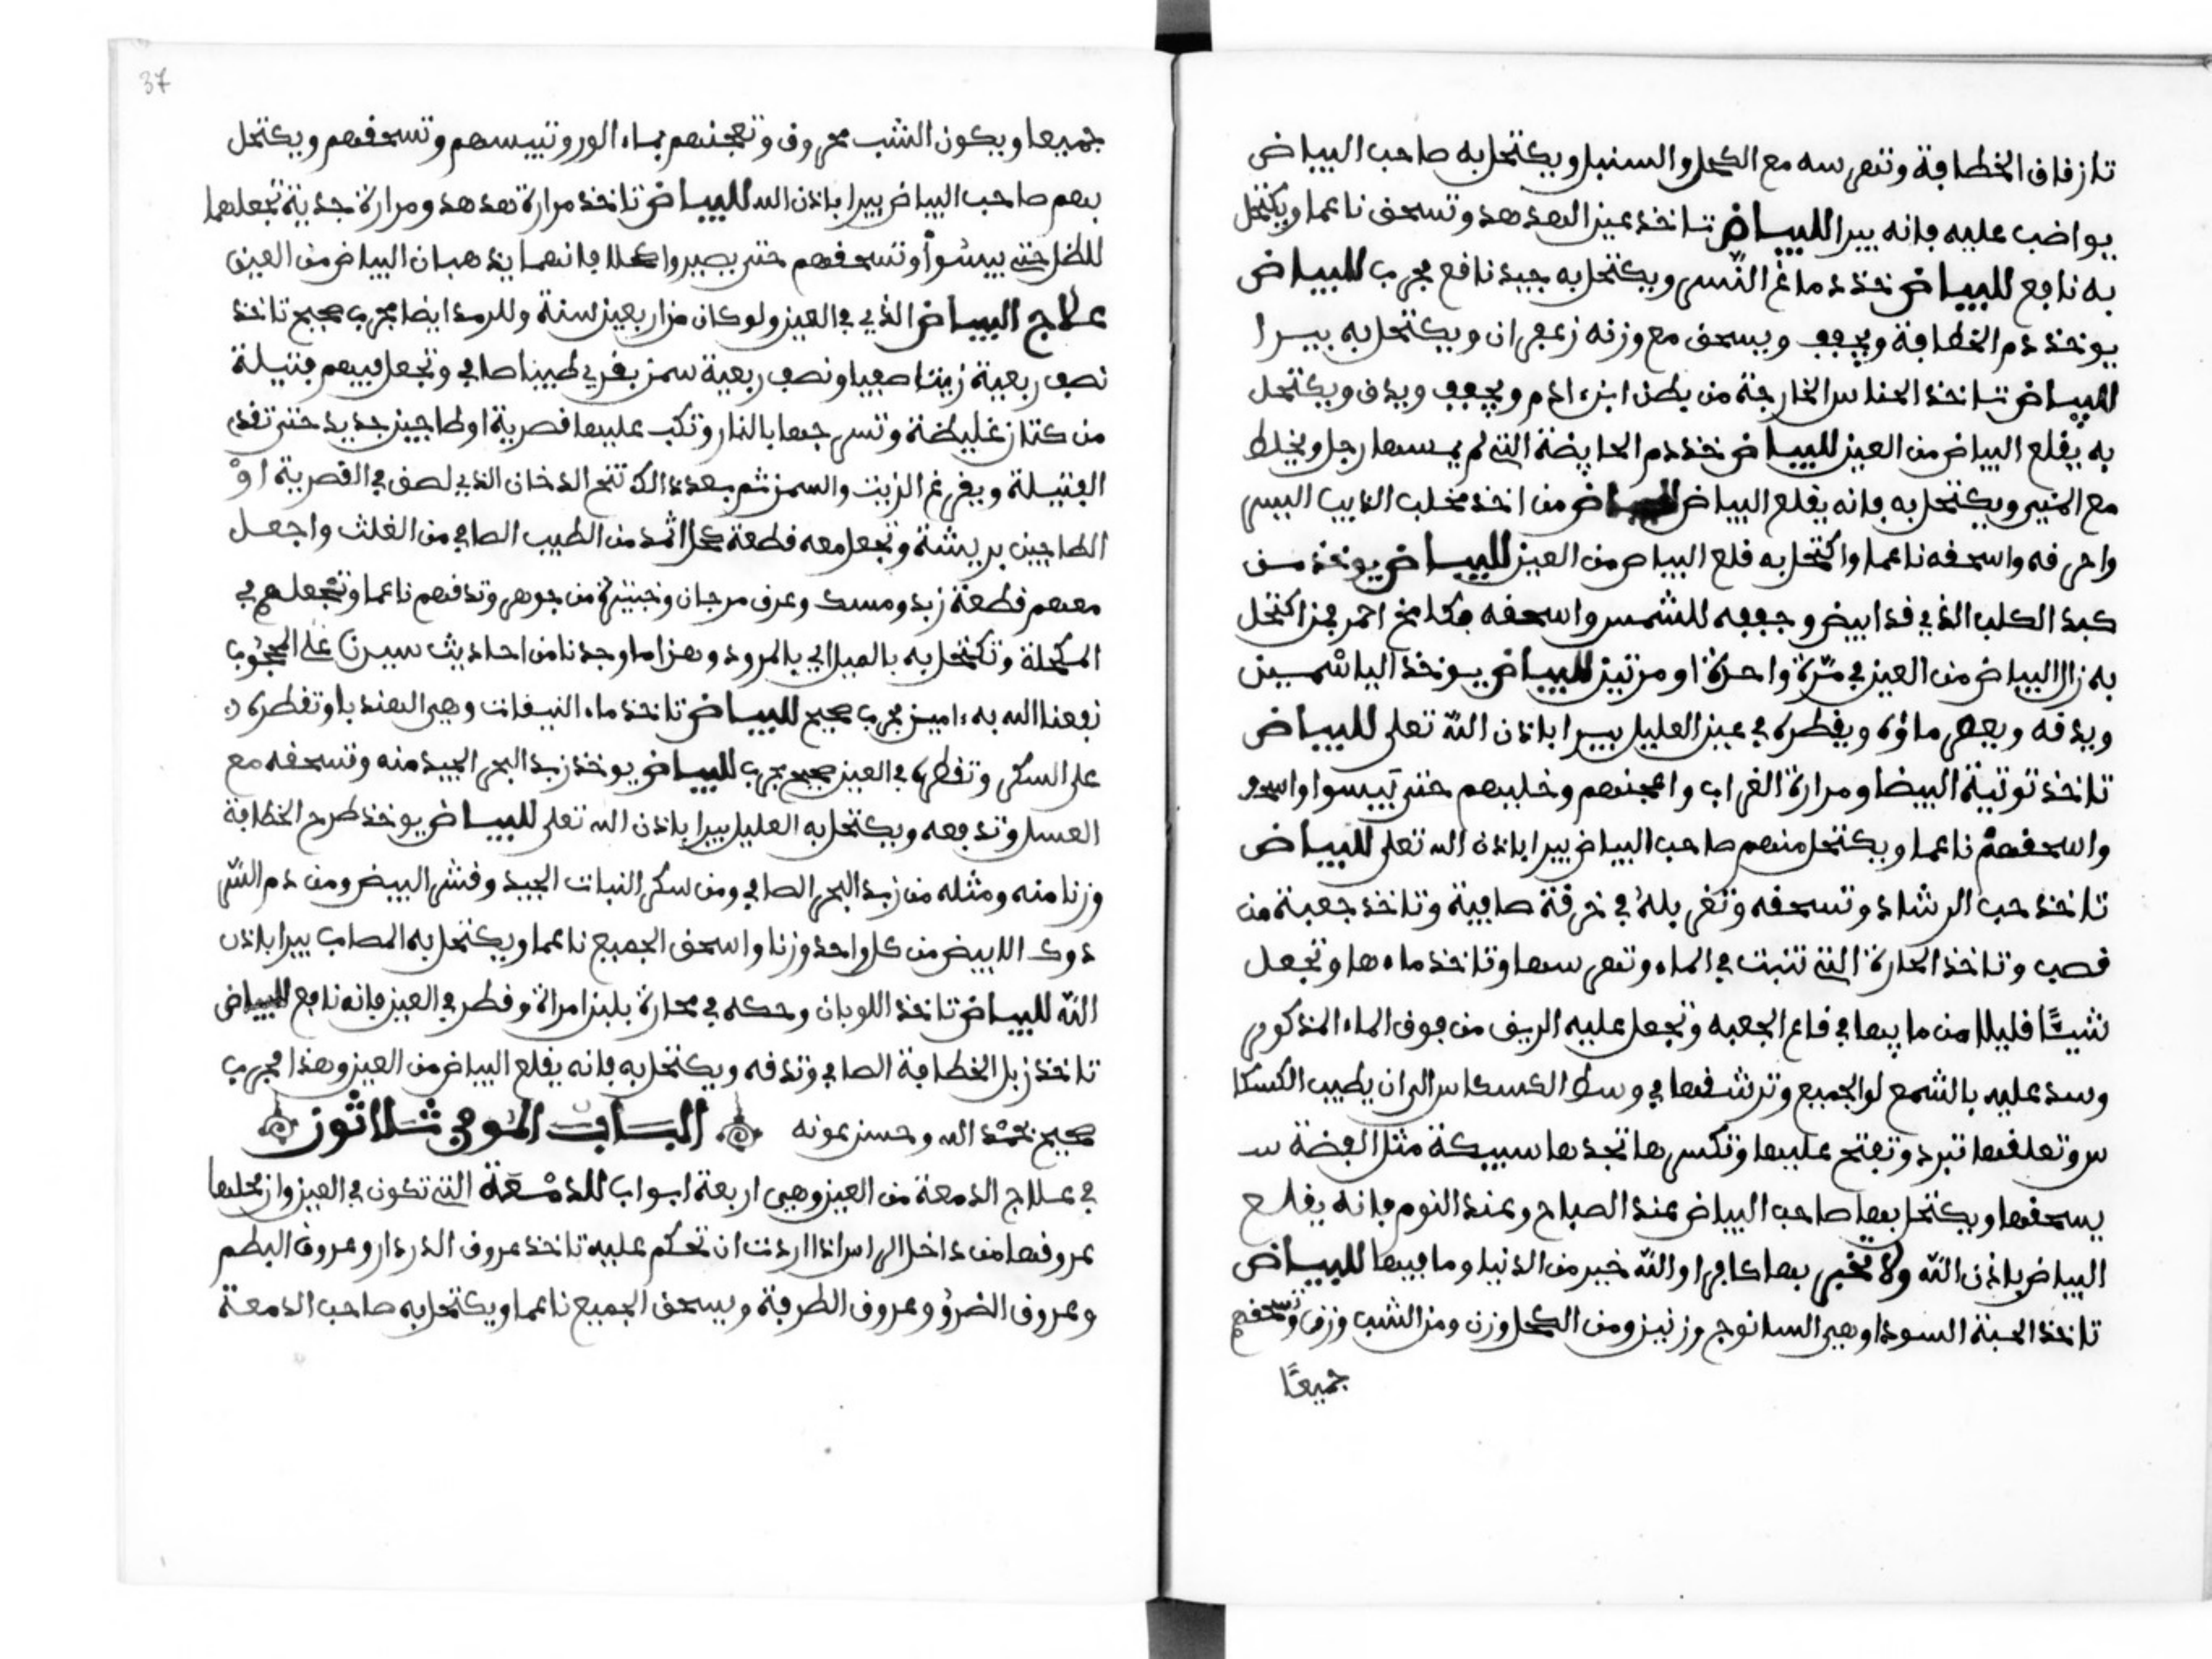 تازفاف الخطافة وتهرسه مع الكحل والسنبل ويكتحل به صاحب البياض
يواضب عليه فانه يبرا للبياض تاخذ عين الهدهد وتسحق ناعما ويكتحل
به نافع للبياض خذ دماغ النسر ويكتحل به جيد نافع مجرب للبياض
يوخذ دم الخطافة ويجفف ويسحق مع وزنه زعفران ويكتحل به يبرا
للبياض تاخذ الحناس الخارجة من بطن ابن ادم ويجفف ويدق ويكتحل
به يقلع البياض من العين للبياض خذ دم الحايضة التي لم يمسها رجل ويخلط
مع المني ويكتحل به فانه يقلع البياض للبياض من اخذ مخلب الذيب اليبس
واحرقه واسحقه ناعما واكتحل به قلع البياض من العين للبياض يوخذ من
كبد الكلب الذي قد ابيض وجففه للشمس واسحقه فكلمخ احمر فمن اكتحل
به زال البياض من العين في مرة واحدة او مرتين للبياض يوخذ الياسمين
ويدقه ويعصر ماؤه ويقطره في عين العليل يبرا باذن الله تعلى للبياض
تاخذ توتية البيضا ومرارة الغراب واعجنهم وخليهم حتى ييبسوا واسحق
واسحقهم ناعما ويكتحل منهم صاحب البياض يبرا باذن الله تعلى للبياض
تاخذ حب الرشاد وتسحقه وتغربله في خرقة صافية وتاخذ جعبة من
قصب وتاخذ الحارة التي تنبت في الماء وتهرسها وتاخذ ماءها وتجعل
شيئا قليلا من مايها في قاع الجعبه وتجعل عليه الريف من فوق الماء المذكور
وسد عليه بالشمع لوالجميع وترشقها في وسط الكسكاس الى ان يطيب الكسكا
س وتعلقها تبرد وتفتح عليها وتكسرها تجدها سبيكة مثل الفضة
يسحقها ويكتحل بها صاحب البياض عند الصباح وعند النوم فانه يقلع
البياض باذن الله ولا تخبر بها كافرا والله خير من الدنيا وما فيها للبياض
تاخذ الحبة السودا وهي السانوج وزنين ومن الكحل وزن ومن الشب وزن وتسحقهم
جميعًا
37
جميعا ويكون الشب محروق وتعجنهم بماء الورد وتيبسهم وتسحقهم ويكتحل
بهم صاحب البياض يبرا باذن الله للبياض تاخذ مرارة هدهد ومرارة جدية تجعلهما
للظل حتى ييبسوا وتسحقهم حتى يصيروا كحلا فانهما يذهبان البياض من العين
علاج البياض الذي في العين ولو كان من اربعين سنة وللرمد ايضا مجرب صحيح تاخذ
نصف ربعية زيتا صفيا ونصف ربعية سمن بقري طيبا صافي وتجعل فيهم فتيلة
من كتان غليظة وتسرجها بالنار وتكب عليها قصرية او طاجين جديد حتى تقدي
الفتيلة ويفرغ الزيت والسمن ثم بعد ذالك تنح الدخان الذي لصق في القصرية او
الطاجين بريشة وتجعل معه قطعة كحل اثمد من الطيب الصافي من الغلث واجعل
معهم قطعة زبد ومسك وعرق مرجان وخبتيزة من جوهر وتدقهم ناعما وتجعلهم في
المكحلة وتكتحل به بالميل اي بالمرود وهذا ما وجدنا من احاديث سيدنا علي المحجوب
نفعنا الله به ءامين مجرب صحيح للبياض تاخذ ماء النيفات وهي الهندبا وتقطره
على السكر وتقطره في العين صحيح مجرب للبياض يوخذ زبد البحر الجيد منه وتسحقه مع
العسل وتدفعه ويكتحل به العليل يبرا باذن الله تعلى للبياض يوخذ طرح الخطافة
وزنا منه ومثله من زبد البحر الصافي ومن سكر النبات الجيد وقشر البيض ومن دم النسر
دوك الابيض من كل واحد وزنا واسحق الجميع ناعما ويكتحل به المصاب يبرا باذن
الله للبياض تاخذ اللوبان وحكه في محارة بلبن امراة وقطر في العين فانه نافع للبياض
تاخذ زبل الخطافة الصافي وتدقه ويكتحل به فانه يقلع البياض من العين وهذا مجرب
صحيح بحمد الله وحسن عونه الباب الموفي ثلاثون
في علاج الدمعة من العين وهي اربعة ابواب للدمعة التي تكون في العين وانحلها
عروقها من داخل الراس اذا اردت ان تحكم عليه تاخذ عروق الدردار وعروق البطم
وعروق الضرو وعروق الطرفة ويسحق الجميع ناعما ويكتحل به صاحب الدمعة